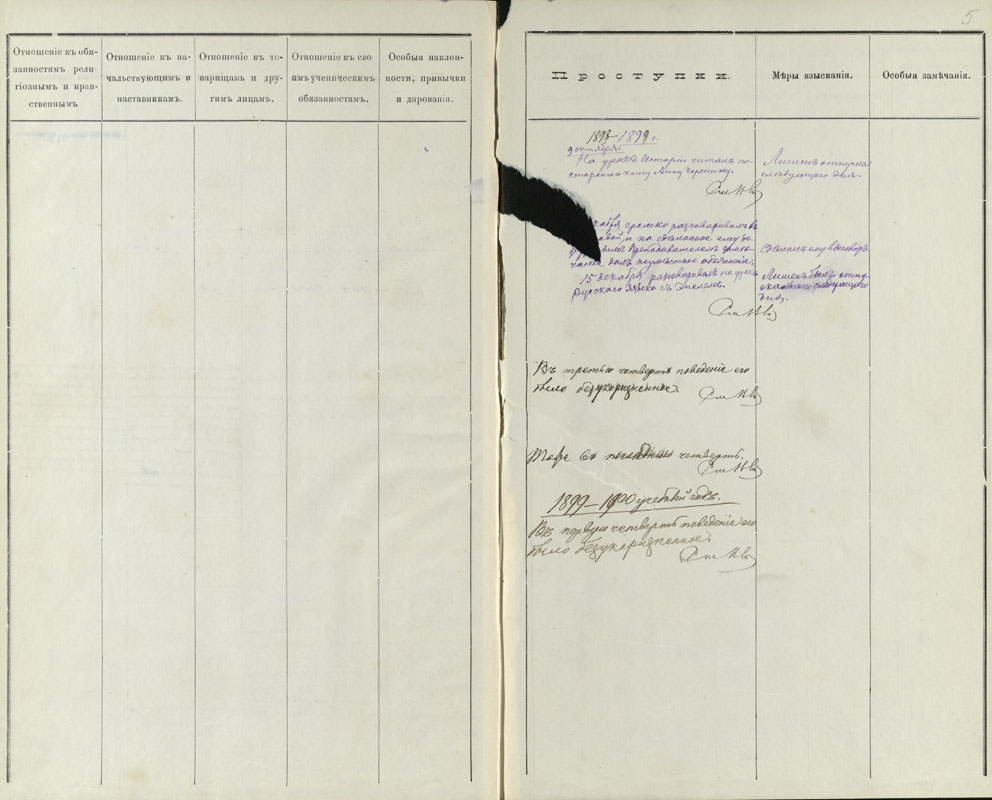 5
Отношеніе къ обя-
занностямъ рели-
гіознымъ и нрав-
ственнымъ
Отношеніе къ на-
чальствующимъ и
наставникамъ.
Отношеніе къ то-
варищамъ и дру-
гимъ лицамъ.
Отношеніе къ сво-
имъ ученическимъ
обязанностямъ.
Особыя наклон-
ности, привычки
и дарованія.
Проступки.
Мѣры взысканія.
Особыя замѣчанія.
1898–1899 г.
9 октября
На урокѣ Исторіи читалъ по-
стороннюю книгу Анну Каренину.
Лишенъ отпуска
слѣдующаго дня.
кабря громко разговаривалъ въ
и на сдѣланное ему де
Преподавателемъ замѣ-
чаніе далъ неумѣстное объясненіе.
Сдѣланъ ему выговоръ.
15 декабря разговаривалъ на урокѣ
Русскаго языка съ
Лишенъ былъ отпу-
ска слѣдующаго
дня.
Въ третью четверть поведеніе его
было безукоризненное.
Тоже въ послѣднюю четверть.
1899–1900 учебный годъ.
Въ первую четверть поведеніе его
было безукоризненное.